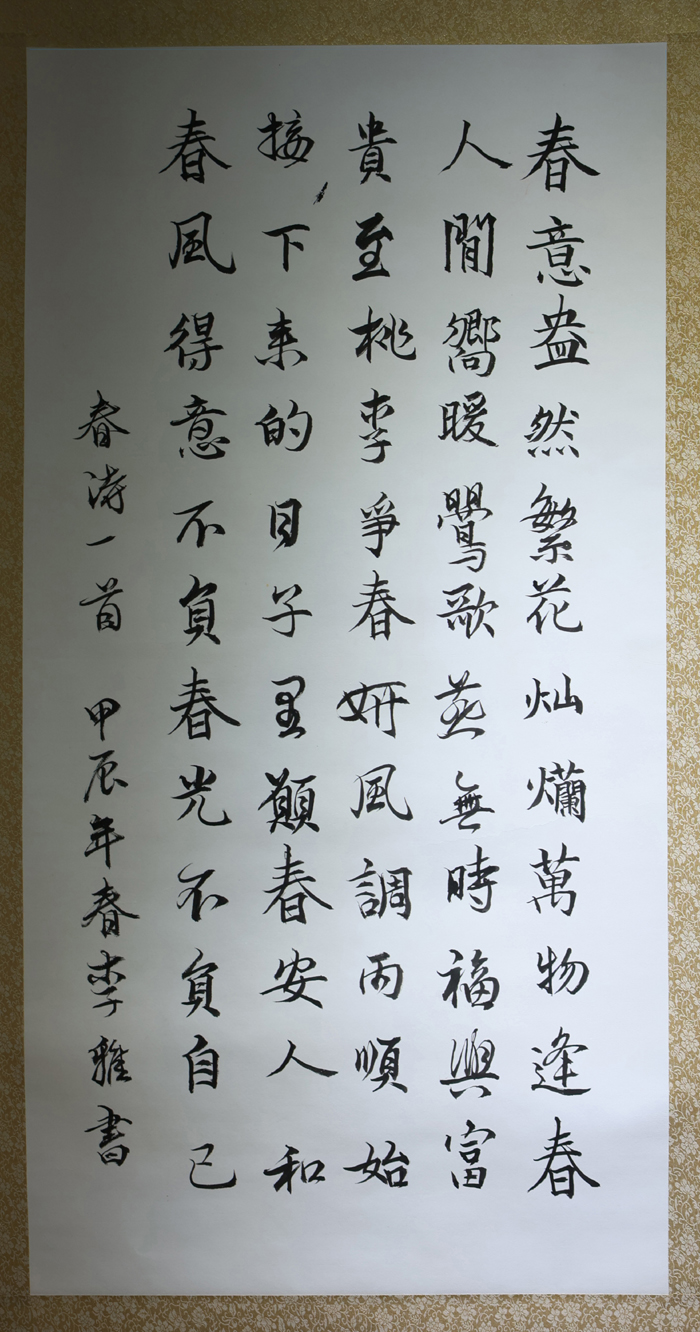 春意盎然繁花灿爛萬物逢春
人間嚮暖鸎歌燕無時福與富
貴至桃李爭春妍風調雨順始
接下来的日子里願春安人和
春風得意不負春光不負自己
春诗一首 甲辰年春李雅書